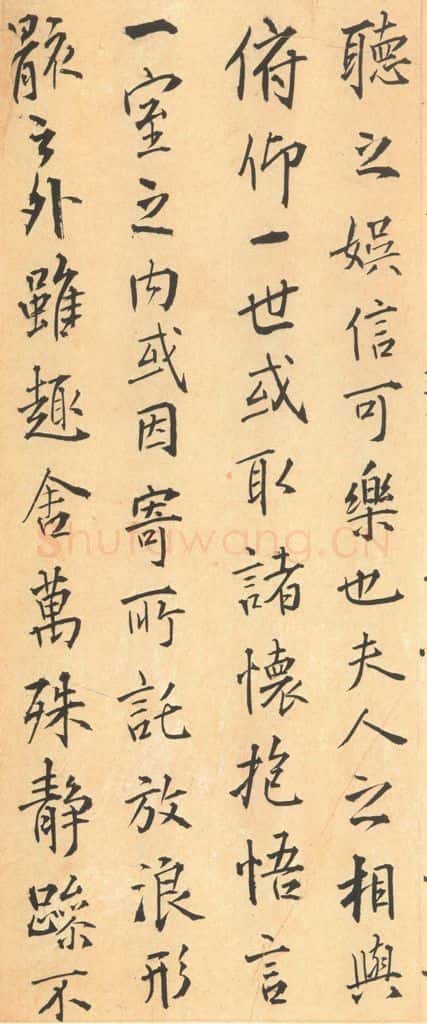 聽之娯信可樂也夫人之相與
俯仰一世或取諸懷抱悟言
一室之内或因寄所託放浪形
骸之外雖趣舍萬殊静躁不
Shufawang.CN